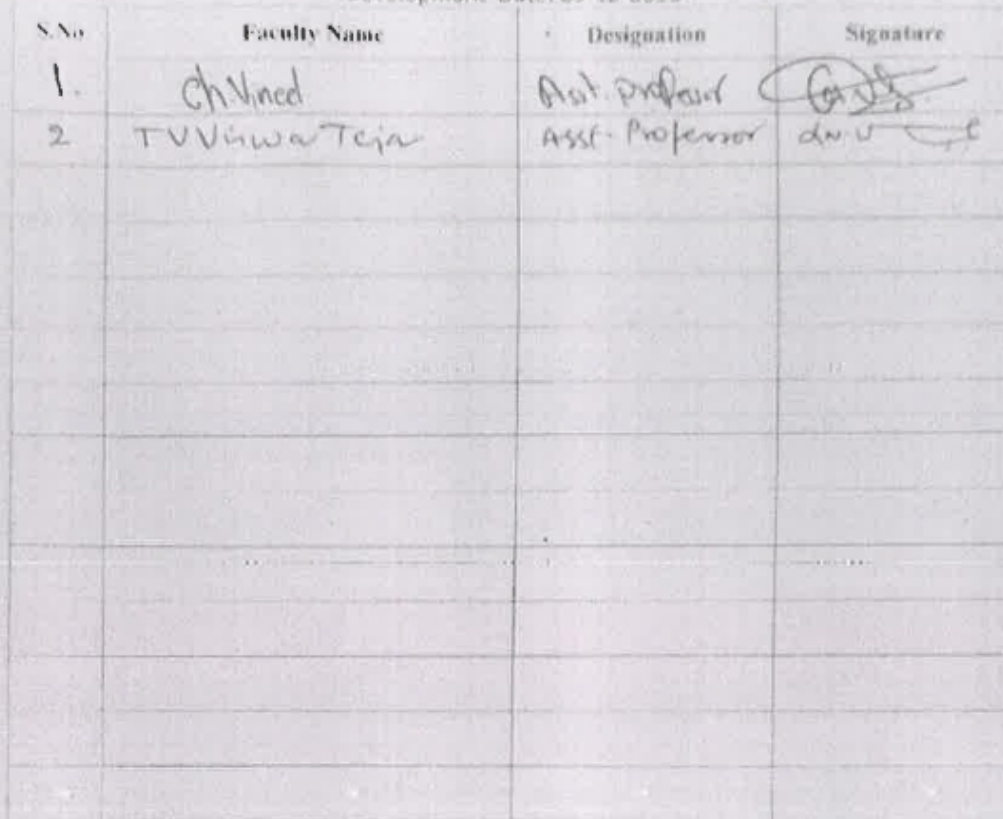 S.No Faculty Name Designation Signature
1. Ch. Vined Asst. professor
2 TV Viswa Teja Asst. Professor